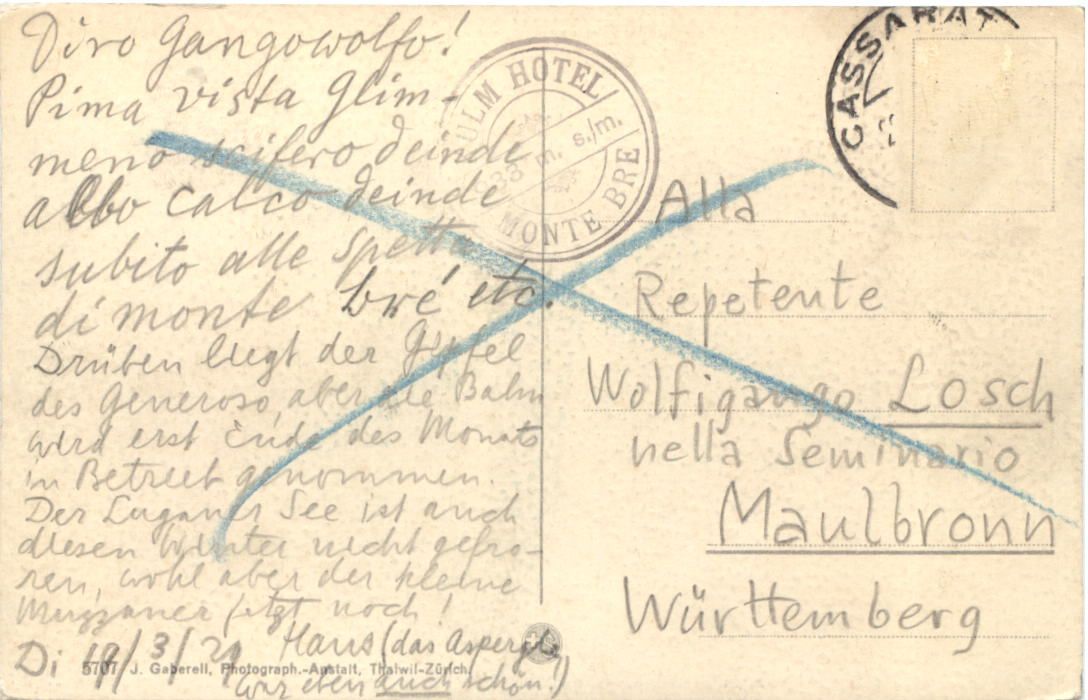 Divo Gangowolfo!
Pima vista Glim-
meno scifero deinde
albo calco deinde
subito alle spetta
di monte bré etc.
Drüben liegt der Gipfel
des Generoso, aber die Bahn
wird erst Ende des Monats
in Betrieb genommen.
Der Luganer See ist auch
diesen Winter nicht gefro-
ren, wohl aber der kleine
Muzzaner jetzt noch!
Di 19/3/29 Hans (das Aspergle
war eben auch schön!)
5707 J. Gaberell, Photograph.-Anstalt, Thalwil-Zürich
KULM HOTEL
938 m. s/m.
MONTE BRE
CASSARAT
Alla
Repetente
Wolfigango Losch
nella Seminario
Maulbronn
Württemberg